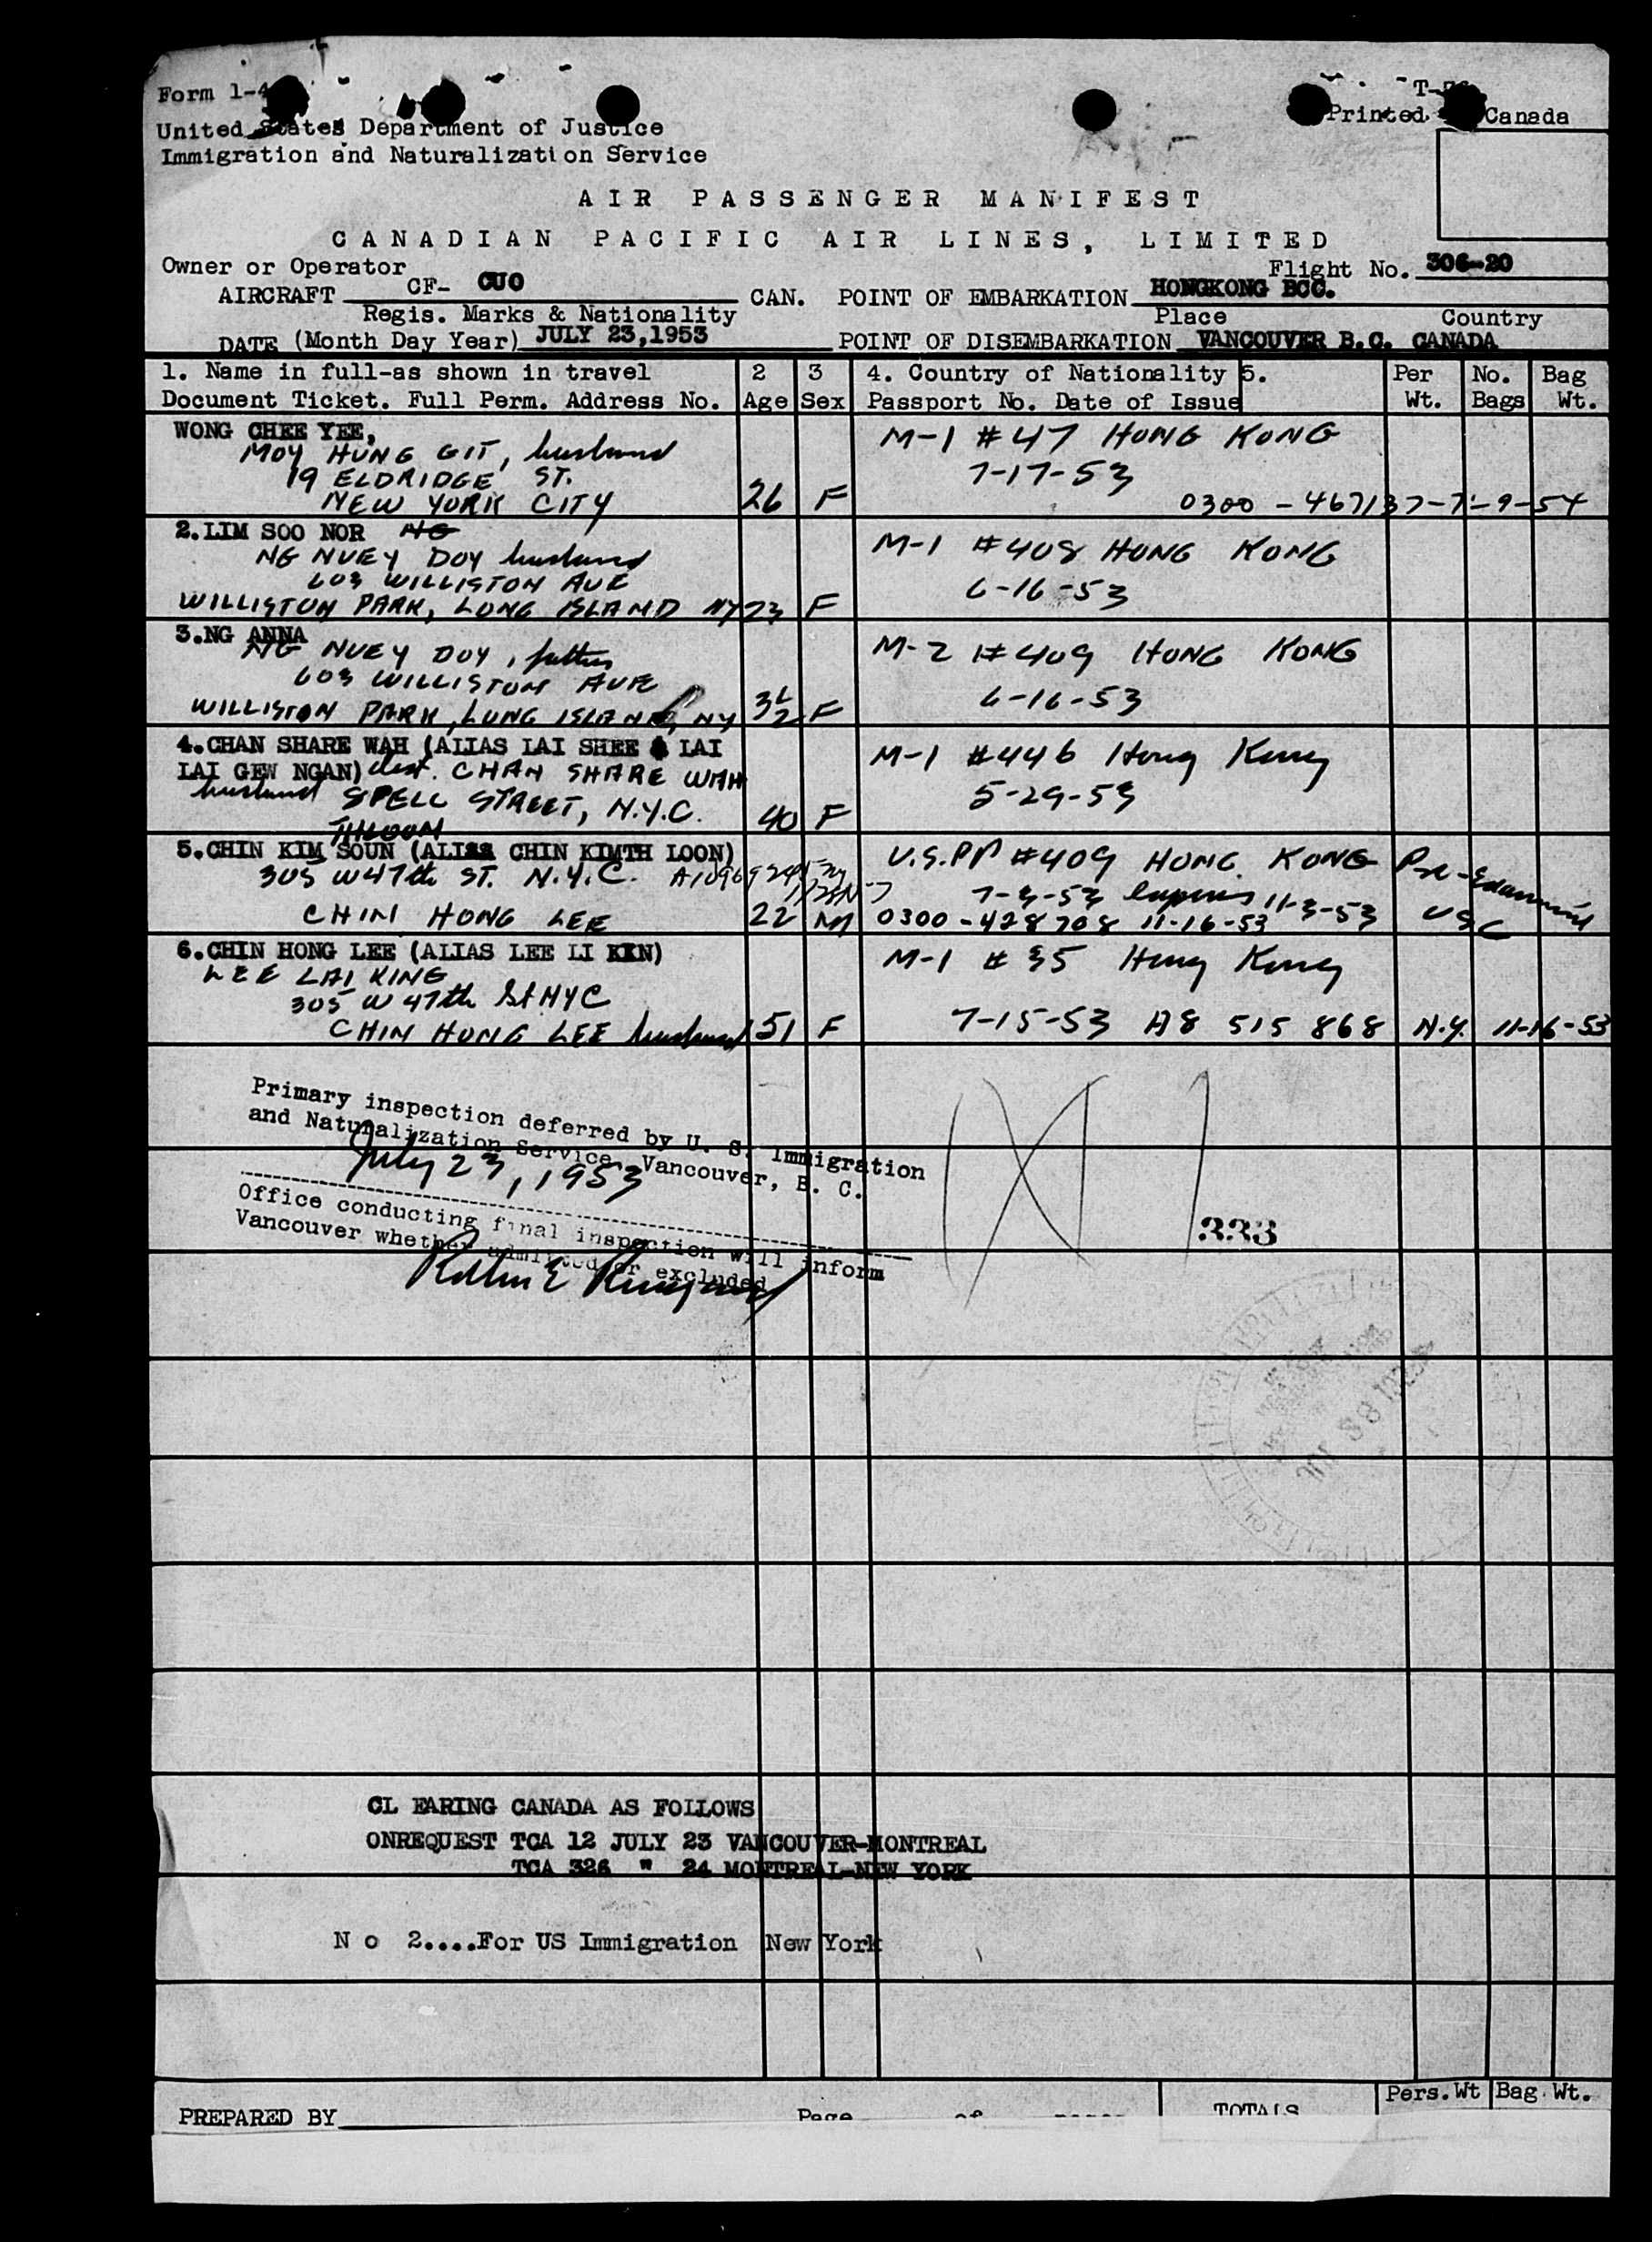 Form 1-4
United States Department of Justice
Immigration and Naturalization Service
Printed Canada
AIR PASSENGER MANIFEST
CANADIAN PACIFIC AIR LINES, LIMITED
Owner or Operator
Flight No. 306-20
AIRCRAFT CF- CUO CAN. POINT OF EMBARKATION HONGKONG BCC.
Regis. Marks & Nationality Place Country
DATE (Month Day Year) JULY 23,1953 POINT OF DISEMBARKATION VANCOUVER B.C. CANADA
1. Name in full-as shown in travel 2 3 4. Country of Nationality 5. Per No. Bag
Document Ticket. Full Perm. Address No. Age Sex Passport No. Date of Issue Wt. Bags Wt.
WONG CHEE YEE, M-1 #47 HONG KONG
MOY HUNG GIT, husband 7-17-53
19 ELDRIDGE ST.
NEW YORK CITY 26 F 0300-467137-7-9-54
2.LIM SOO NOR NG M-1 #408 HONG KONG
NG NUEY DOY husband 6-16-53
603 WILLISTON AVE
WILLISTON PARK, LONG ISLAND NY 23 F
3.NG ANNA M-2 #409 HONG KONG
NG NUEY DOY, father 6-16-53
603 WILLISTON AVE
WILLISTON PARK, LONG ISLAND, NY 3½ F
4.CHAN SHARE WAH (ALIAS LAI SHEE & LAI M-1 #446 Hong Kong
LAI GEW NGAN) CHAN SHARE WAH 5-29-53
husband SPELL STREET, N.Y.C. 40 F
5.CHIN KIM SOUN (ALIAS CHIN KIMTH LOON) U.S.PP #409 HONG KONG Pre-Examined
305 W 47th ST. N.Y.C. 7-3-53 expires 11-3-53 USC
CHIN HONG LEE 22 M 0300-428708 11-16-53
6.CHIN HONG LEE (ALIAS LEE LI KIN) M-1 #35 Hong Kong
LEE LAI KING
305 W 47th St NYC
CHIN HONG LEE husband 51 F 7-15-53 A8 515 868 N.Y. 11-16-53
Primary inspection deferred by U. S. Immigration
and Naturalization Service, Vancouver, B. C.
July 23, 1953
Office conducting final inspection will inform
Vancouver whether admitted or excluded
333
CL EARING CANADA AS FOLLOWS
ONREQUEST TCA 12 JULY 23 VANCOUVER-MONTREAL
TCA 326 " 24 MONTREAL-NEW YORK
N o 2....For US Immigration New York
Pers.Wt Bag Wt.
PREPARED BY Page of pages TOTALS